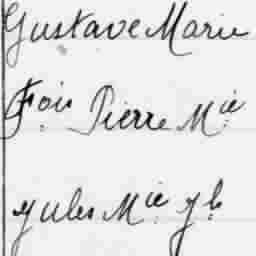 Gustave Marie
Fois Pierre Mie
Jules Mie Jh